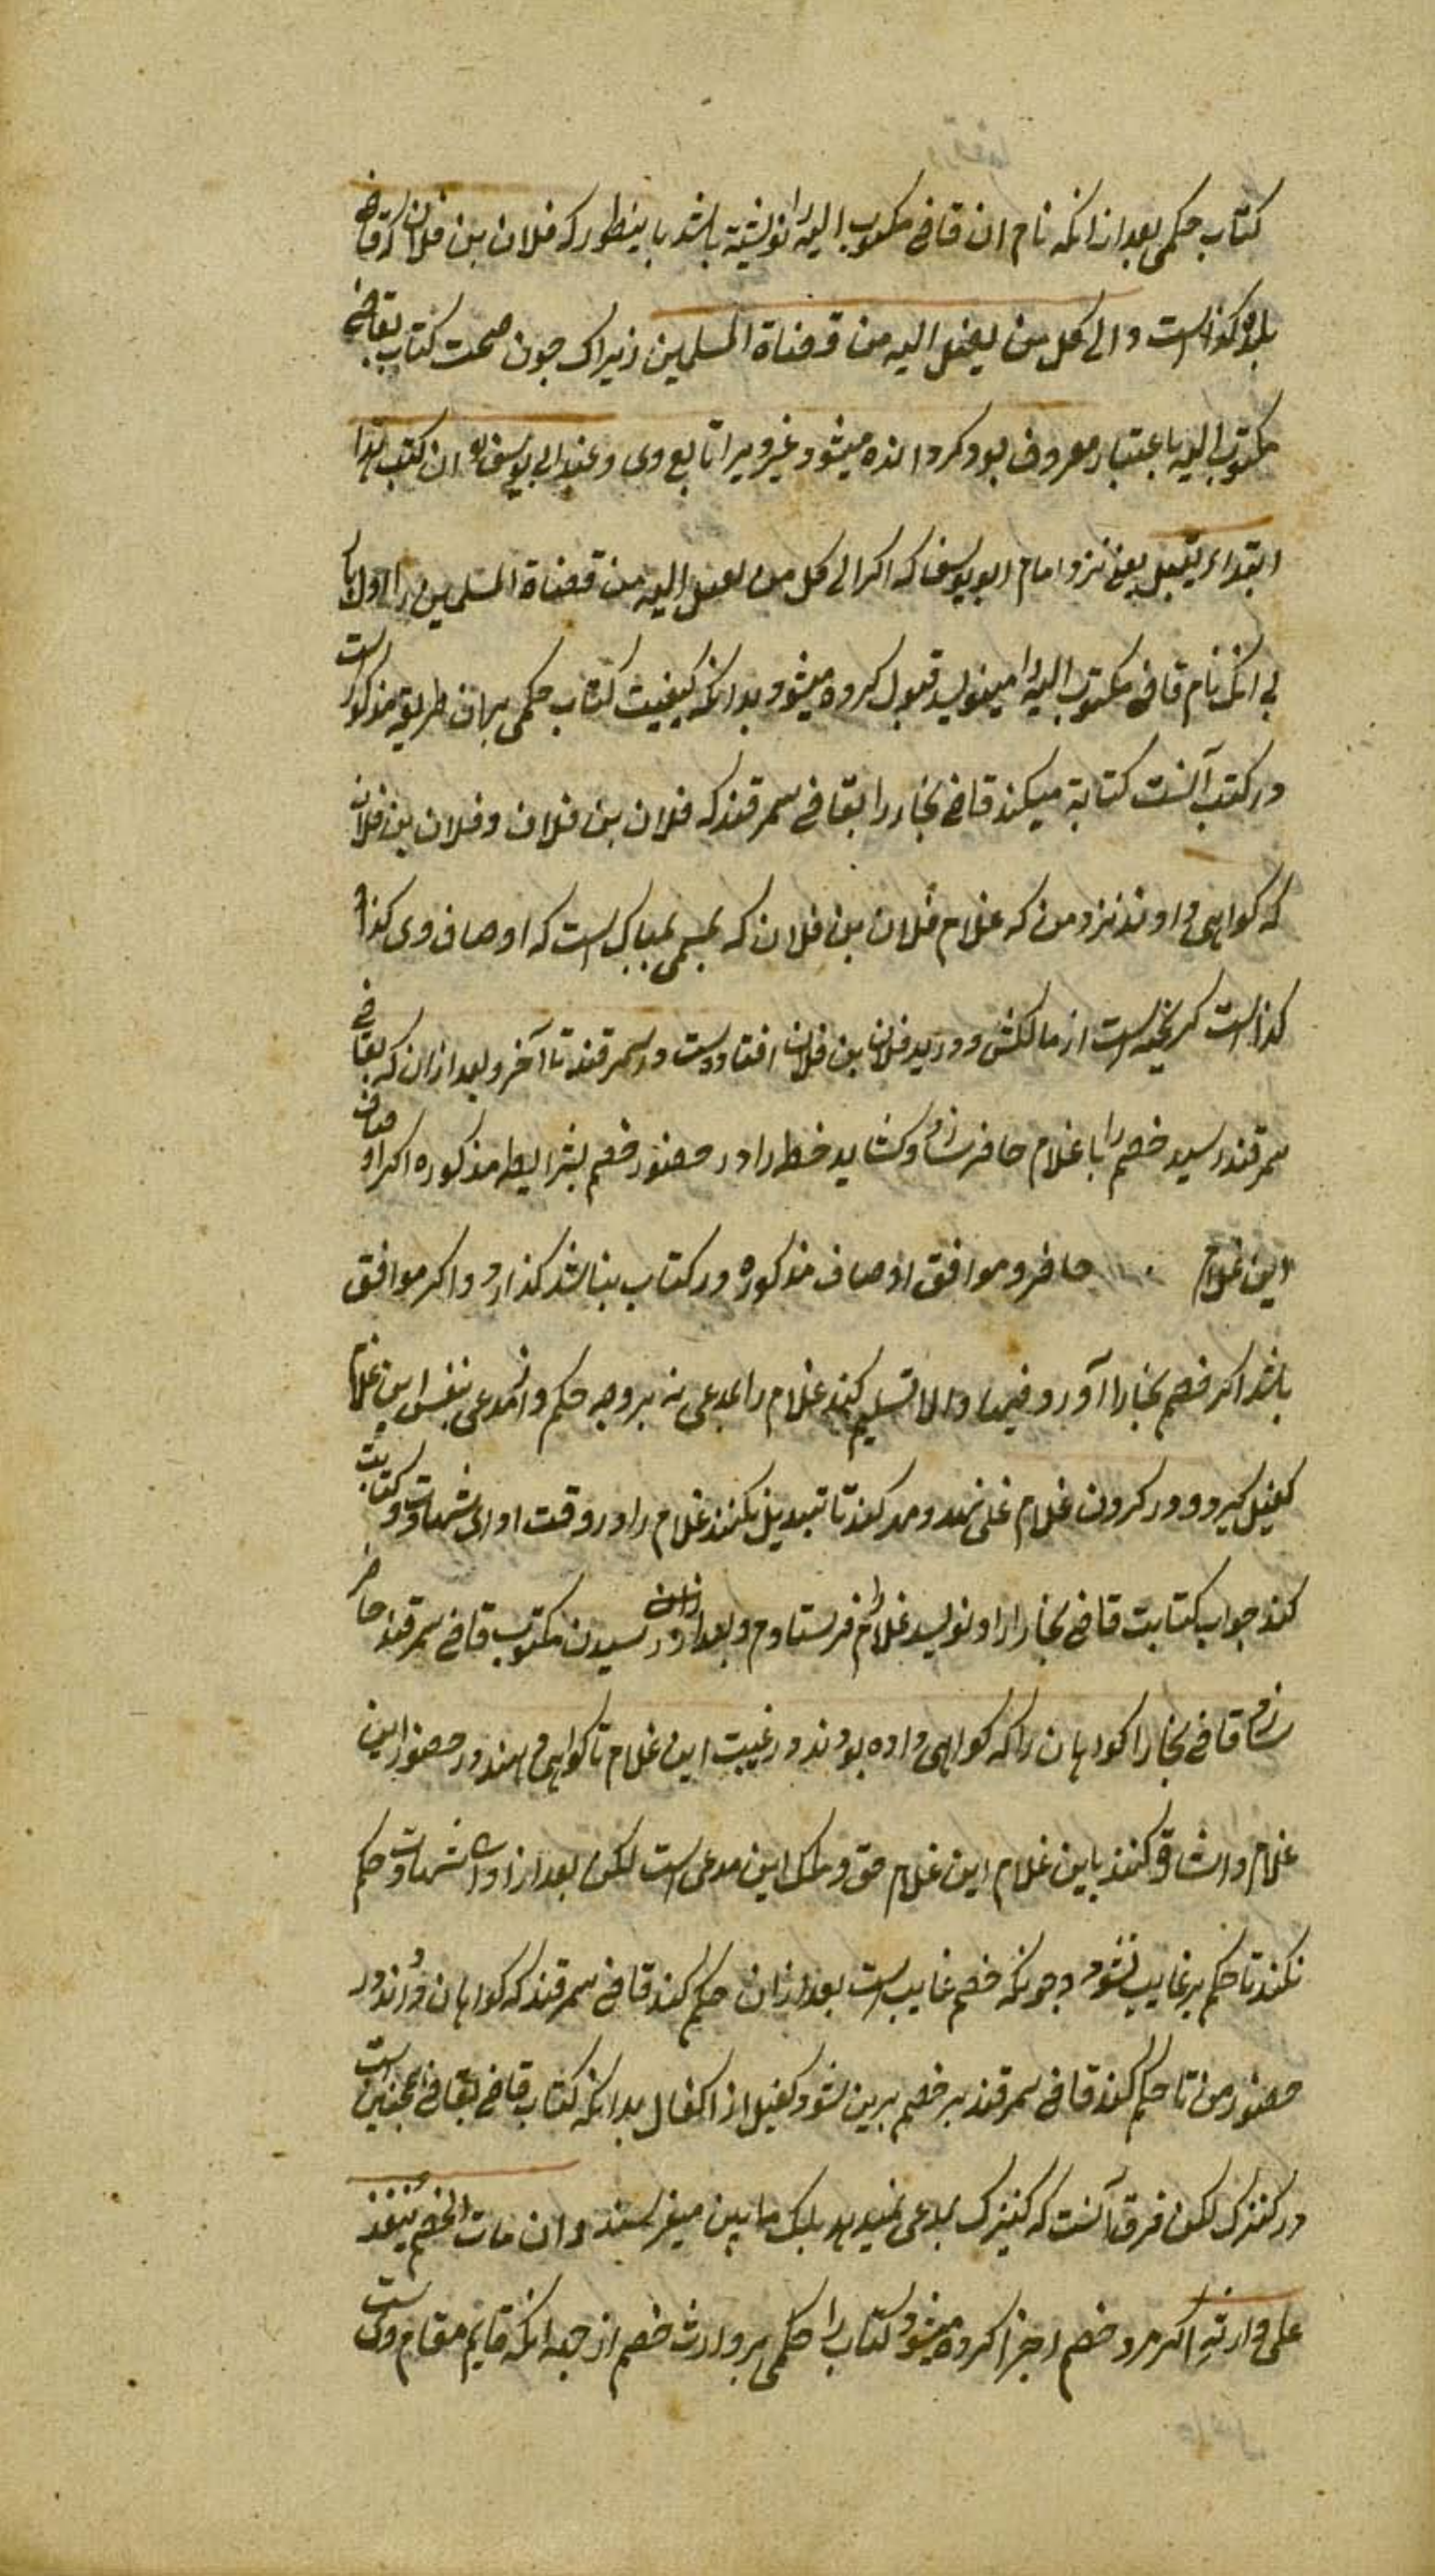 کتاب حکمی بعد از انکه نام ان قاضی مکتوب الیه را نوشته باشد باینطور که فلان بن فلان که قاضی
بلده کذاست والی کل من یصل الیه من قضاة المسلمین زیراک چون صحت کتاب بقاضی
مکتوب الیه باعتبار معروف بود کردانده میشود غیر ویرا تابع وی وعند ابی یوسف ان کتب هذا
ابتداء یقبل یعنی نزد امام ابو یوسف که اکر الی کل من یصل الیه من قضاة المسلمین را اول
بی انک نام قاضی مکتوب الیه را مینویسد قبول کرده میشود بدانکه کیفیت کتاب حکمی بهمان طریق مذکور است
در کتب آنست کتابة میکند قاضی بخارا بقاضی سمرقند که فلان بن فلان وفلان بن فلان
که کواهی دادند نزد من که غلام فلان بن فلان که مسمی بمبارک است که اوصاف وی کذا و
کذاست کریخته است از مالکش و در ید فلان بن فلان افتادست در سمرقند تا آخر وبعد از ان که بقاضی
سمرقند رسید خصم را با غلام حاضر سازد وکشاید خط را در حضور خصم بشرایط مذکوره اکر اوصاف
این غلام حاضر موافق اوصاف مذکوره در کتاب نباشد کذارد واکر موافق
باشد اکر خصم بخارا آورد فبها والا تسلیم کند غلام را بمدعی نه بروجه حکم واز مدعی بنفس این غلام
کفیل کیرد ودر کردن غلام غل نهد ومهر کند تا تبدیل نکنند غلام را در وقت ادای شهادت وکتابت
کند جواب کتابت قاضی بخارا را ونویسد غلام را فرستادم وبعد از ان در رسیدن مکتوب قاضی سمرقند حاضر
سازد قاضی بخارا کواهان را که کواهی داده بودند در غیبت این غلام تا کواهی دهند در حضور این
غلام واشارة کنند باین غلام این غلام حق وملک این مدعی است لکن بعد از ادای شهادت حکم
نکند تا حکم بر غایب نشود چونکه خصم غایب است بعد از ان حکم کند قاضی سمرقند که کواهان دادند در
حضور من تا حکم کند قاضی سمرقند بر خصم برین نشود کفیل از اکفال بدانکه کتاب قاضی بقاضی همچنین است
در کنیزک لکن فرق آنست که کنیزک بمدعی نمیدهد بلک بامین میفرستد وان مات الخصم ینفذ
علی وارثه اکر مرد خصم اجرا کرده میشود کتاب حکمی را بر وارث خصم از جهه انکه قایم مقام ویست